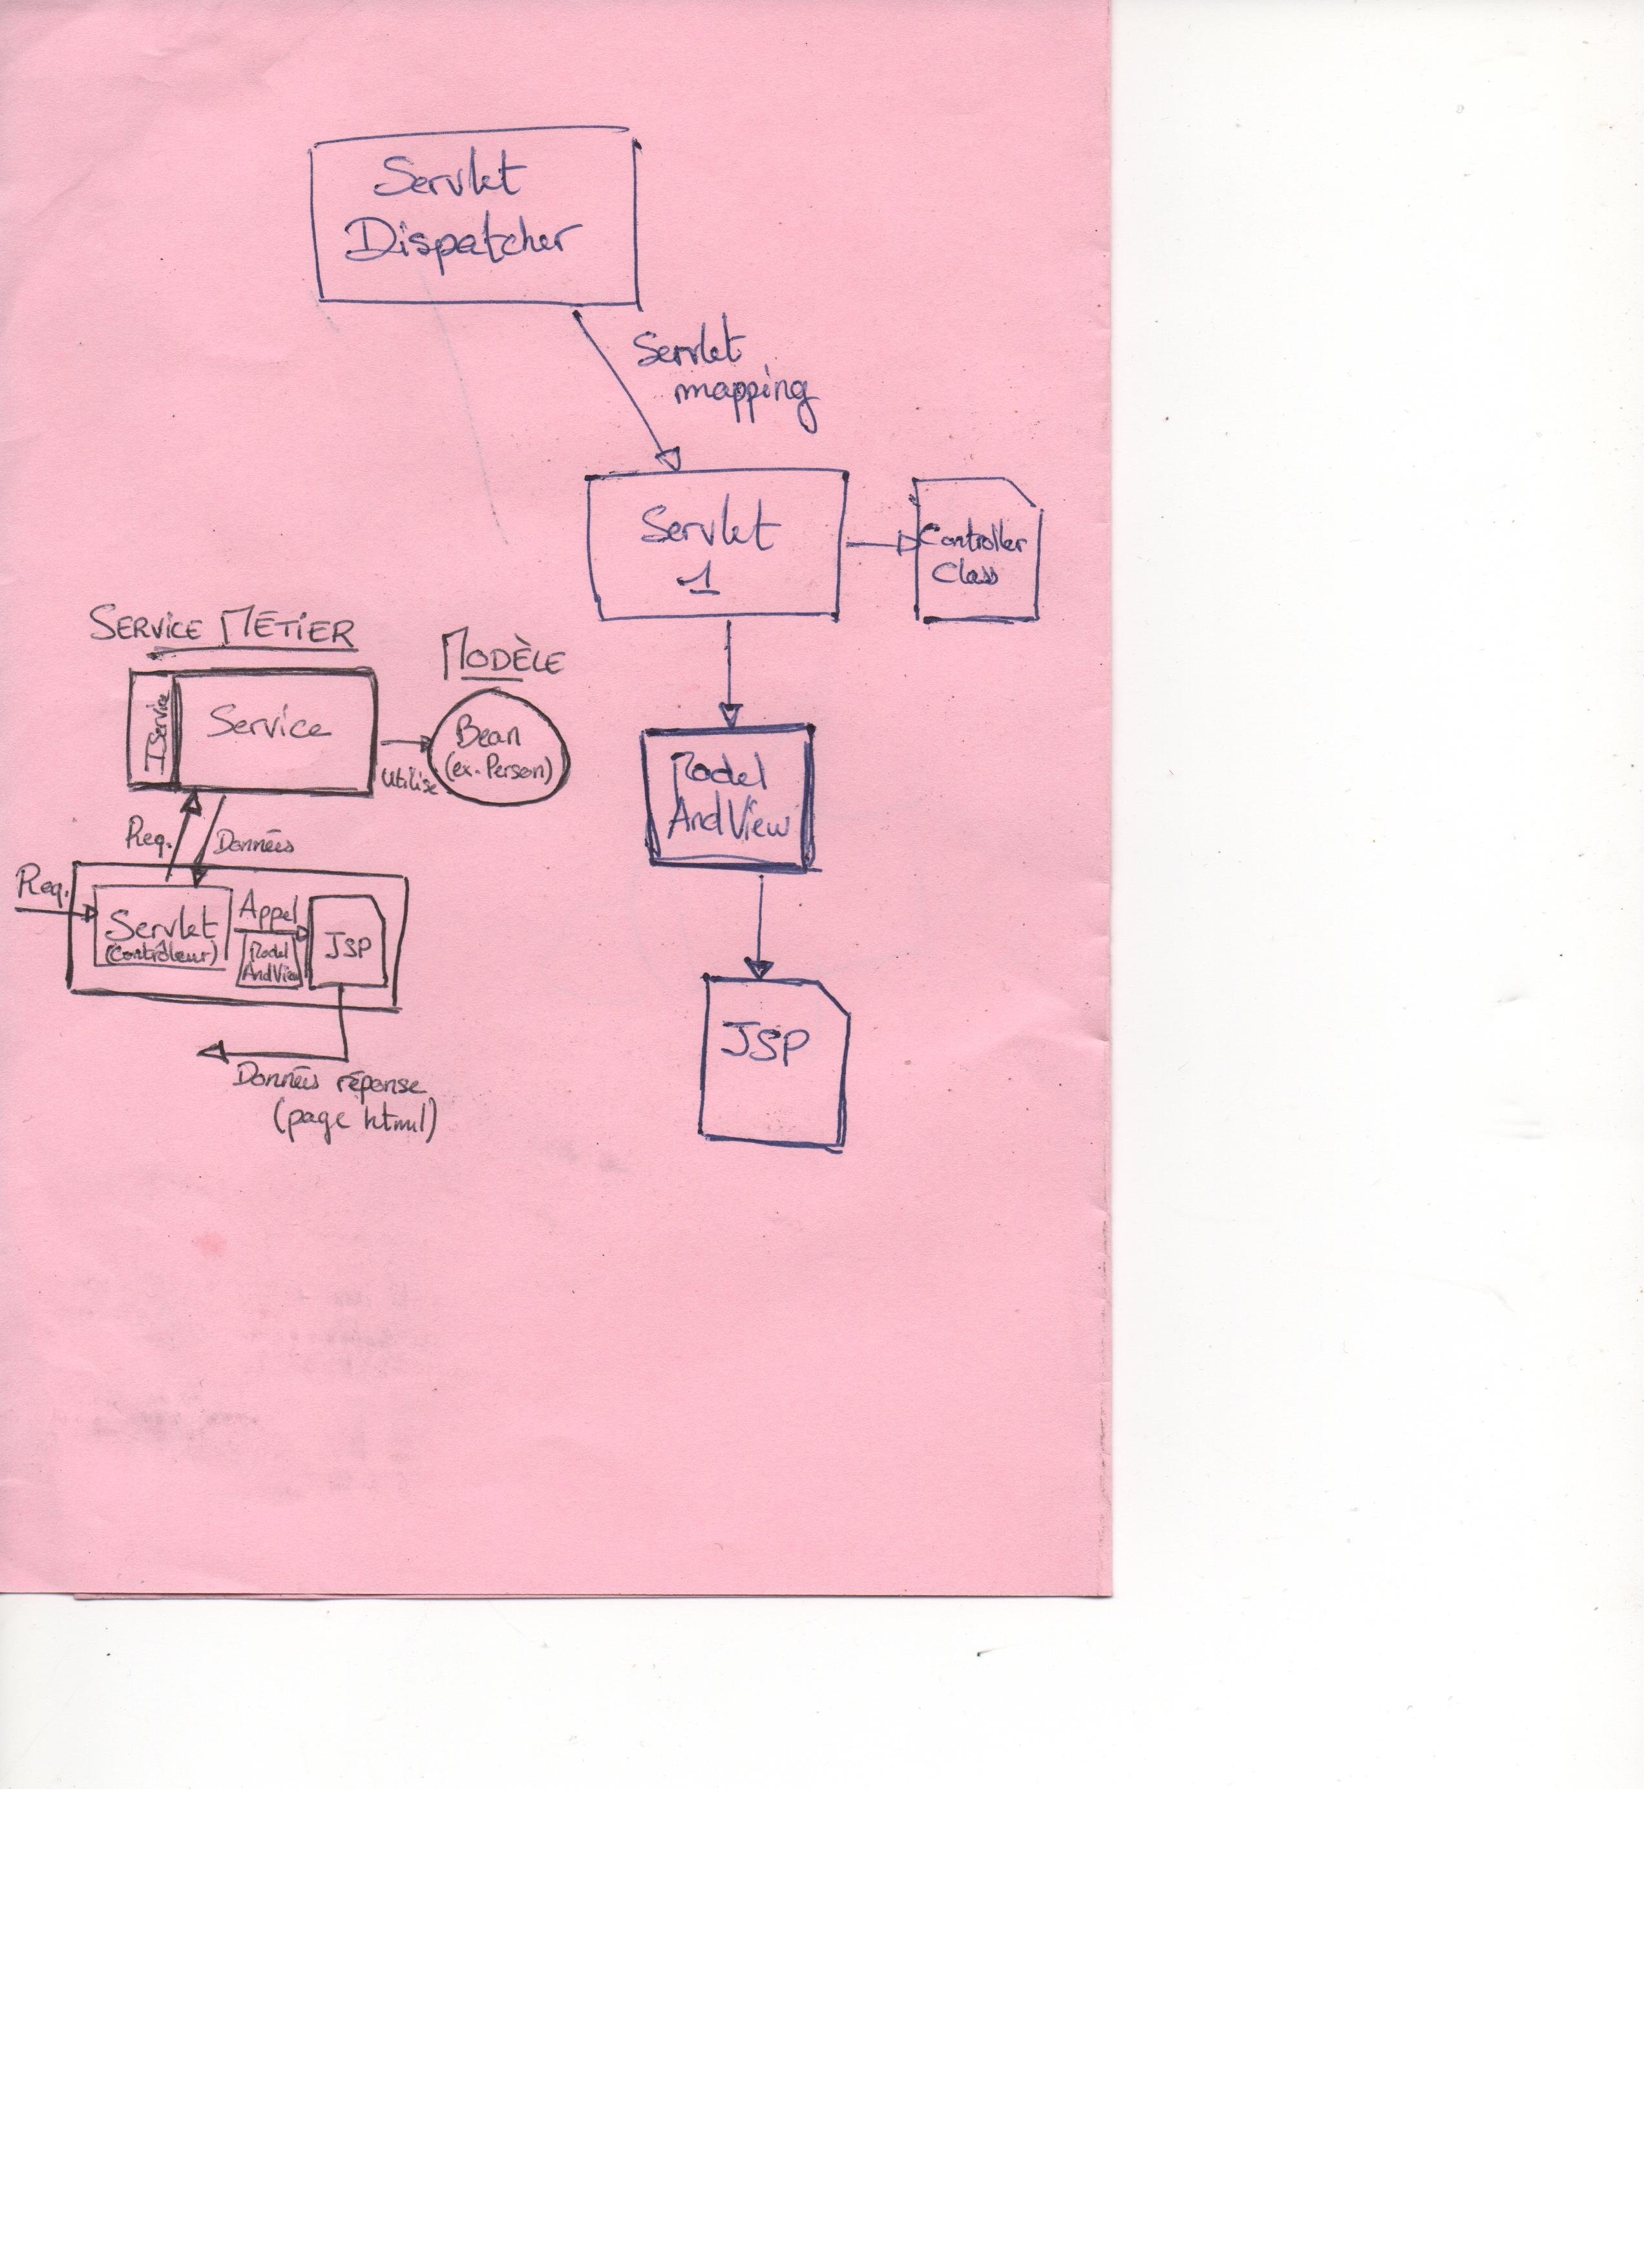 Servlet
Dispatcher
Servlet
mapping
Servlet
1
Controller
Class
Model
AndView
JSP
SERVICE MÉTIER
MODÈLE
IService
Service
Bean
(ex. Person)
Utilise
Req.
Données
Req.
Servlet
(Contrôleur)
Appel
Model
AndView
JSP
Données réponse
(page html)